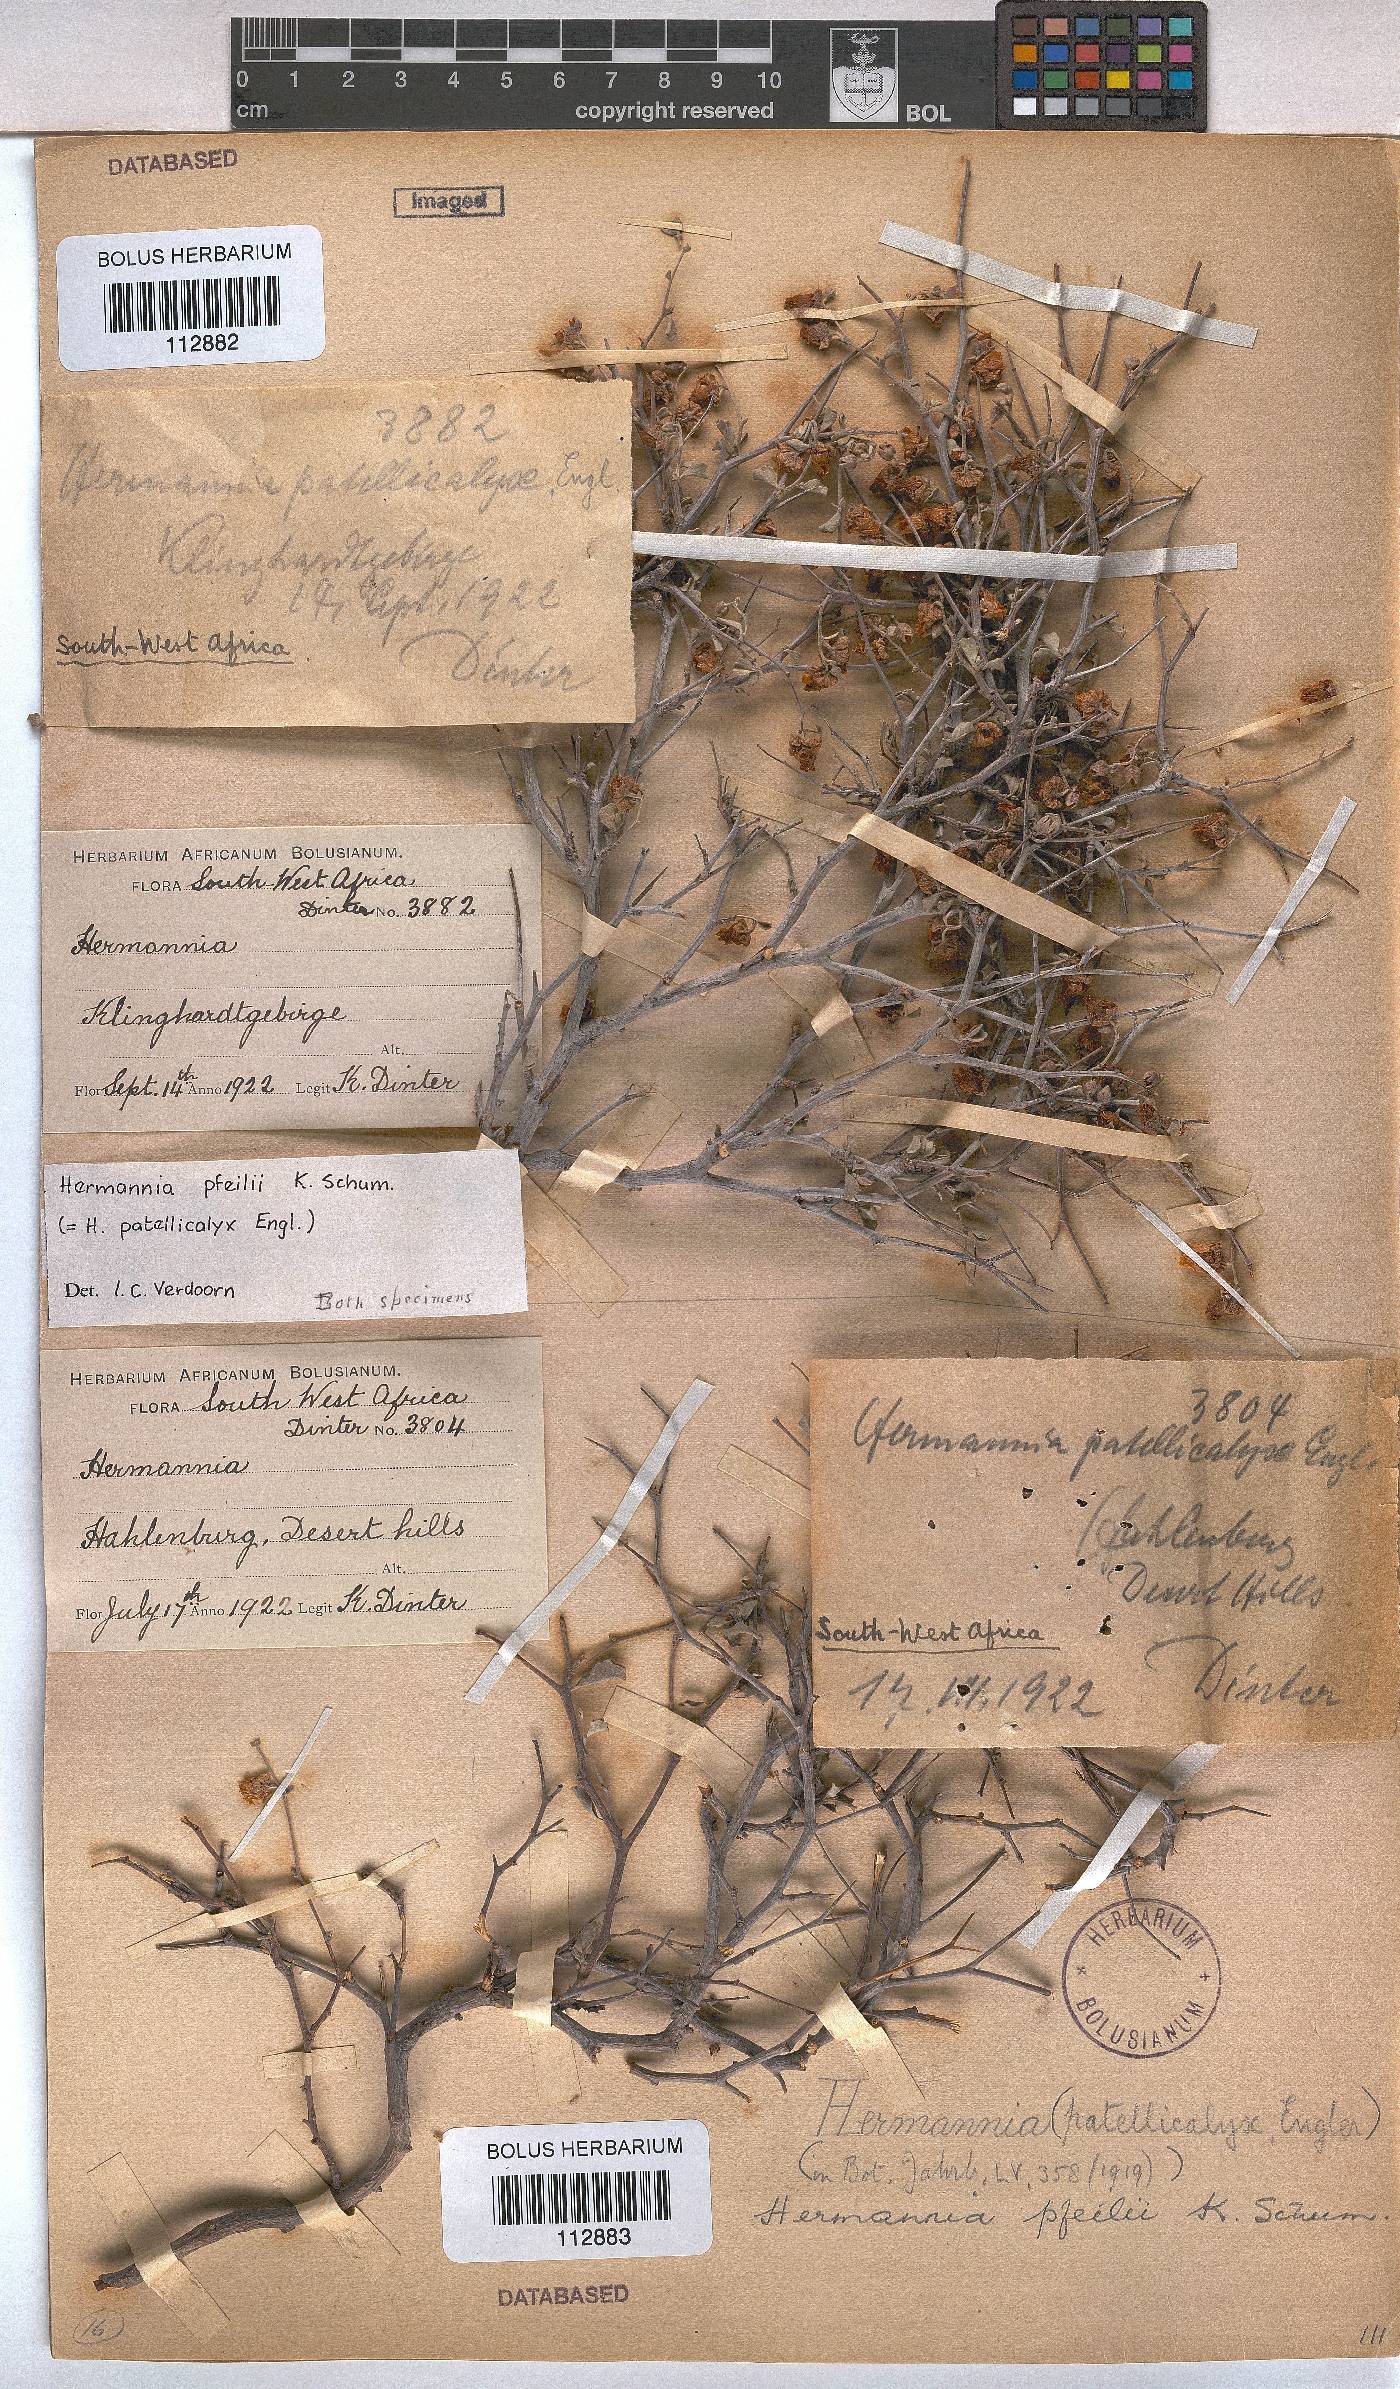 0 1 2 3 4 5 6 7 8 9 10
cm
copyright reserved
BOL
DATABASED
Imaged
BOLUS HERBARIUM
112882
3882
Hermannia patellicalyx Engl.
Klinghardtgebirge
14, Sept. 1922
South-West Africa
Dinter
HERBARIUM AFRICANUM BOLUSIANUM.
FLORA South West Africa
Dinter No. 3882
Hermannia
Klinghardtgebirge
Alt.
Flor Sept. 14th Anno 1922 Legit K. Dinter
Hermannia pfeilii K. Schum.
(= H. patellicalyx Engl.)
Det. I. C. Verdoorn
Both specimens
HERBARIUM AFRICANUM BOLUSIANUM.
FLORA South West Africa
Dinter No. 3804
Hermannia
Hahlenburg, Desert hills
Alt.
Flor July 17th Anno 1922 Legit K. Dinter
3804
Hermannia patellicalyx Engl.
Desert Hills
South-West Africa
1922
Dinter
HERBARIUM
BOLUSIANUM
Hermannia (patellicalyx Engler)
(in Bot. Jahrb. LV, 358 (1919))
Hermannia pfeilii K. Schum.
BOLUS HERBARIUM
112883
DATABASED
16
111